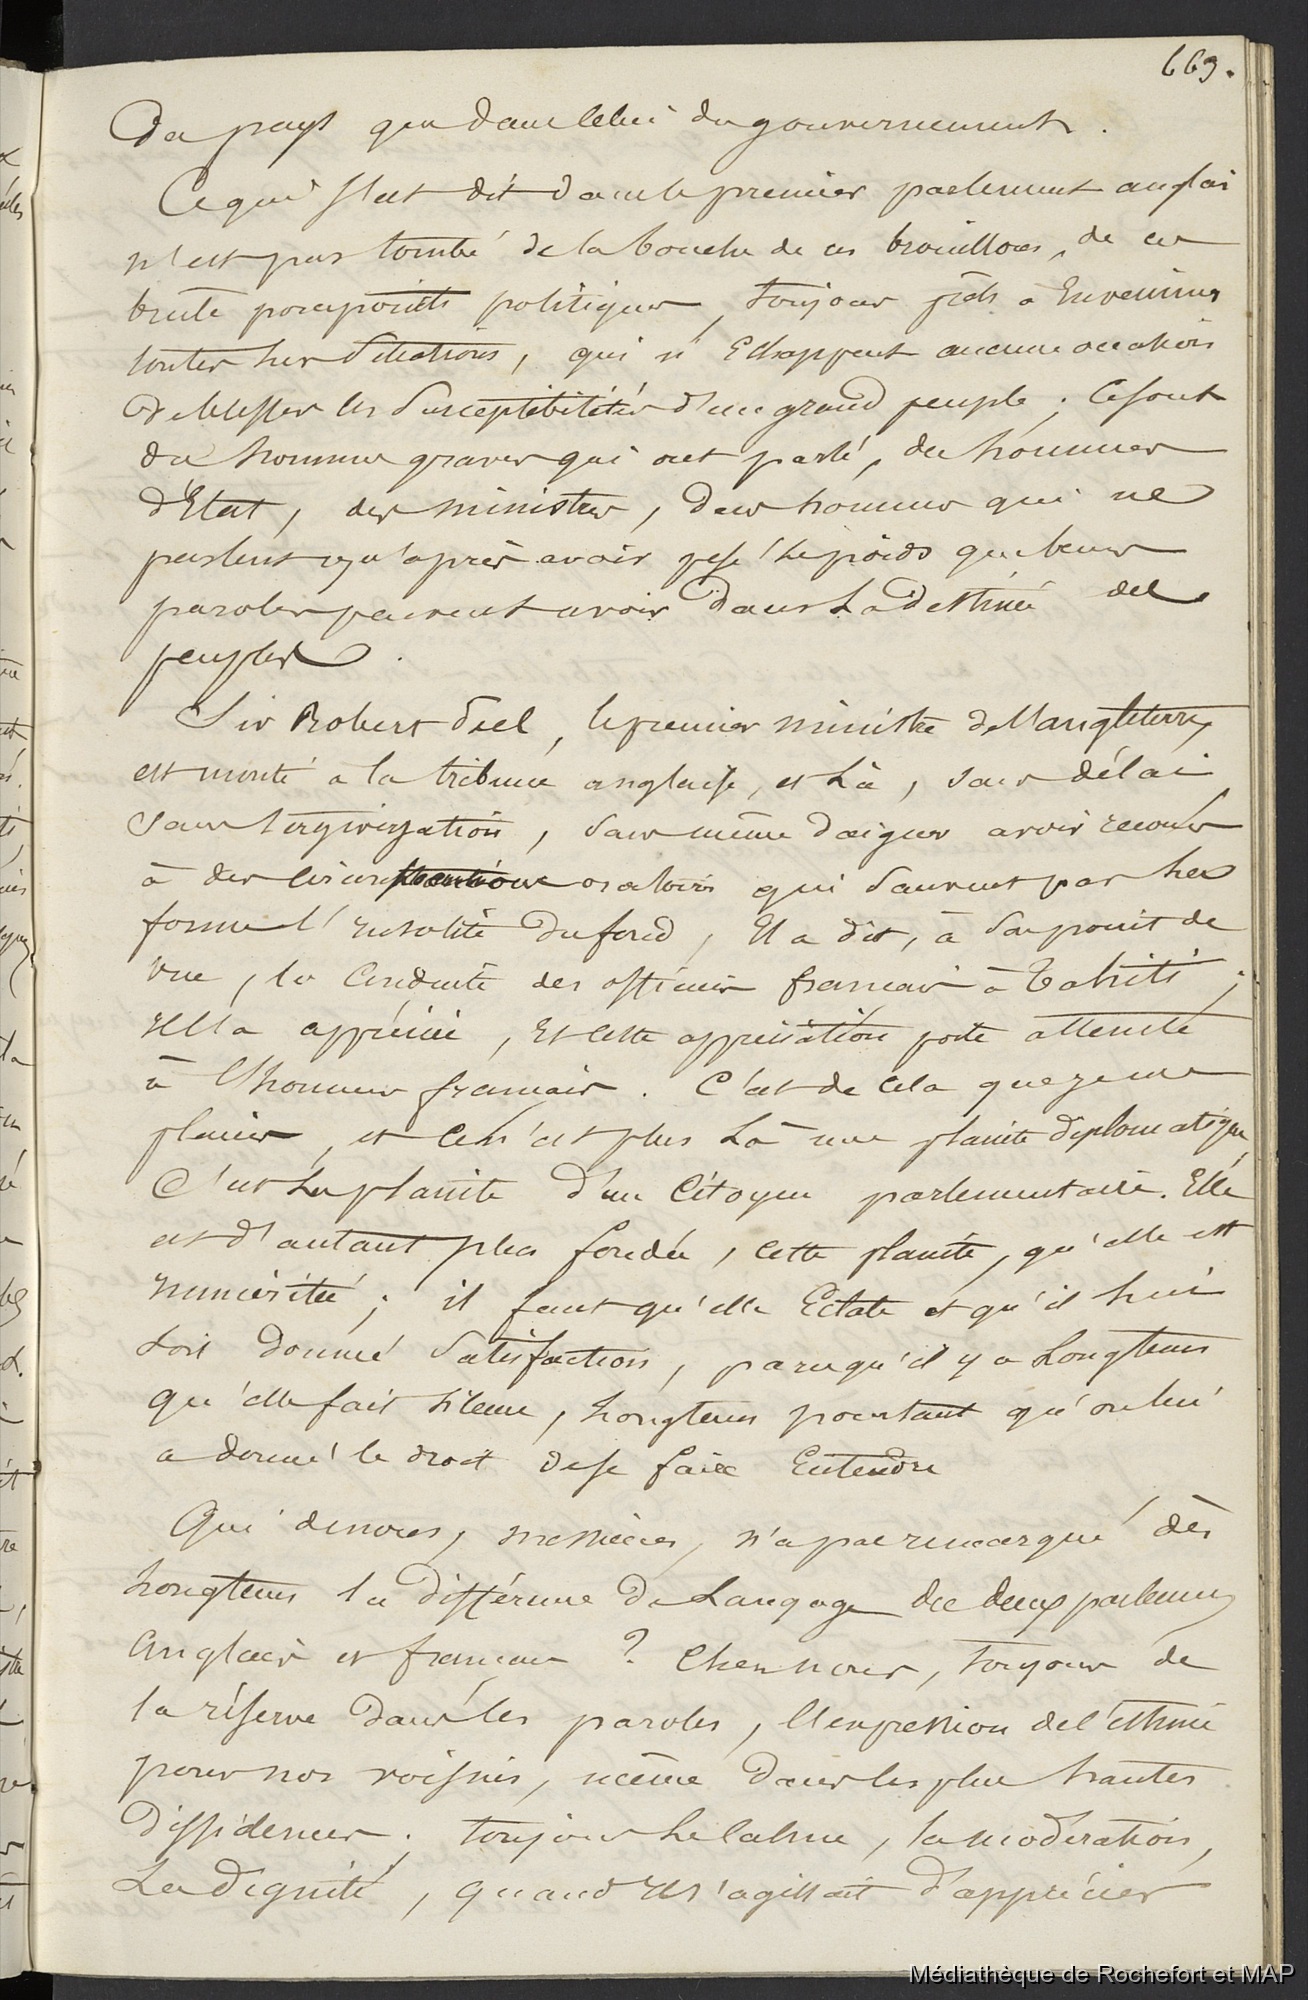 669.
Du pays que dans celui du gouvernement.
Ce qui s'est dit dans le premier parlement anglai
n'est pas tombé de la bouche de ces brouillons, de ces
boute politiques, toujours prêts à Envenimer
toutes les situations, qui n'Echappent aucune occasion
De blesser les susceptibilités d'un grand peuple ; ce sont
des hommes graves qui ont parlé, des hommes
d'Etat, des ministres, des hommes qui ne
parlent qu'après avoir pesé le poids que leurs
paroles peuvent avoir Dans La destinée des
peuples.
Sir Robert Peel, le premier ministre de l'angleterre,
est monté à la tribune anglaise, et Là, sans délai
sans tergiversation, sans même daigner avoir recours
à des oratoires qui sauvent par la
forme l'insolite du fond, Il a dit, à son point de
vue, la Conduite des officiers français à Tahiti ;
Il l'a appréciée, Et cette appréciation porte atteinte
à l'honneur français. C'est de cela que je me
plains, et ce n'est plus Là une plainte diplomatique,
C'est La plainte d'un Citoyen parlementaire. Elle
est d'autant plus fondée, cette plainte, qu'elle est
réitérée ; il faut qu'elle Eclate et qu'il lui
soit donné satisfaction, parcequ'il y a Longtems
qu'elle fait silence, Longtems pourtant qu'on lui
a donné le droit de se faire Entendre
Qui de nous, messieurs, n'a pas remarqué dès
Longtems la différence De Langage des deux parlemens
Anglais et français ? Chez nous, toujours de
la réserve dans les paroles, l'expression de l'estime
pour nos voisins, même dans les plus hautes
dissidences ; toujours Le calme, la modération,
La dignité, quand Il s'agissait d'apprécier
Médiathèque de Rochefort et MAP